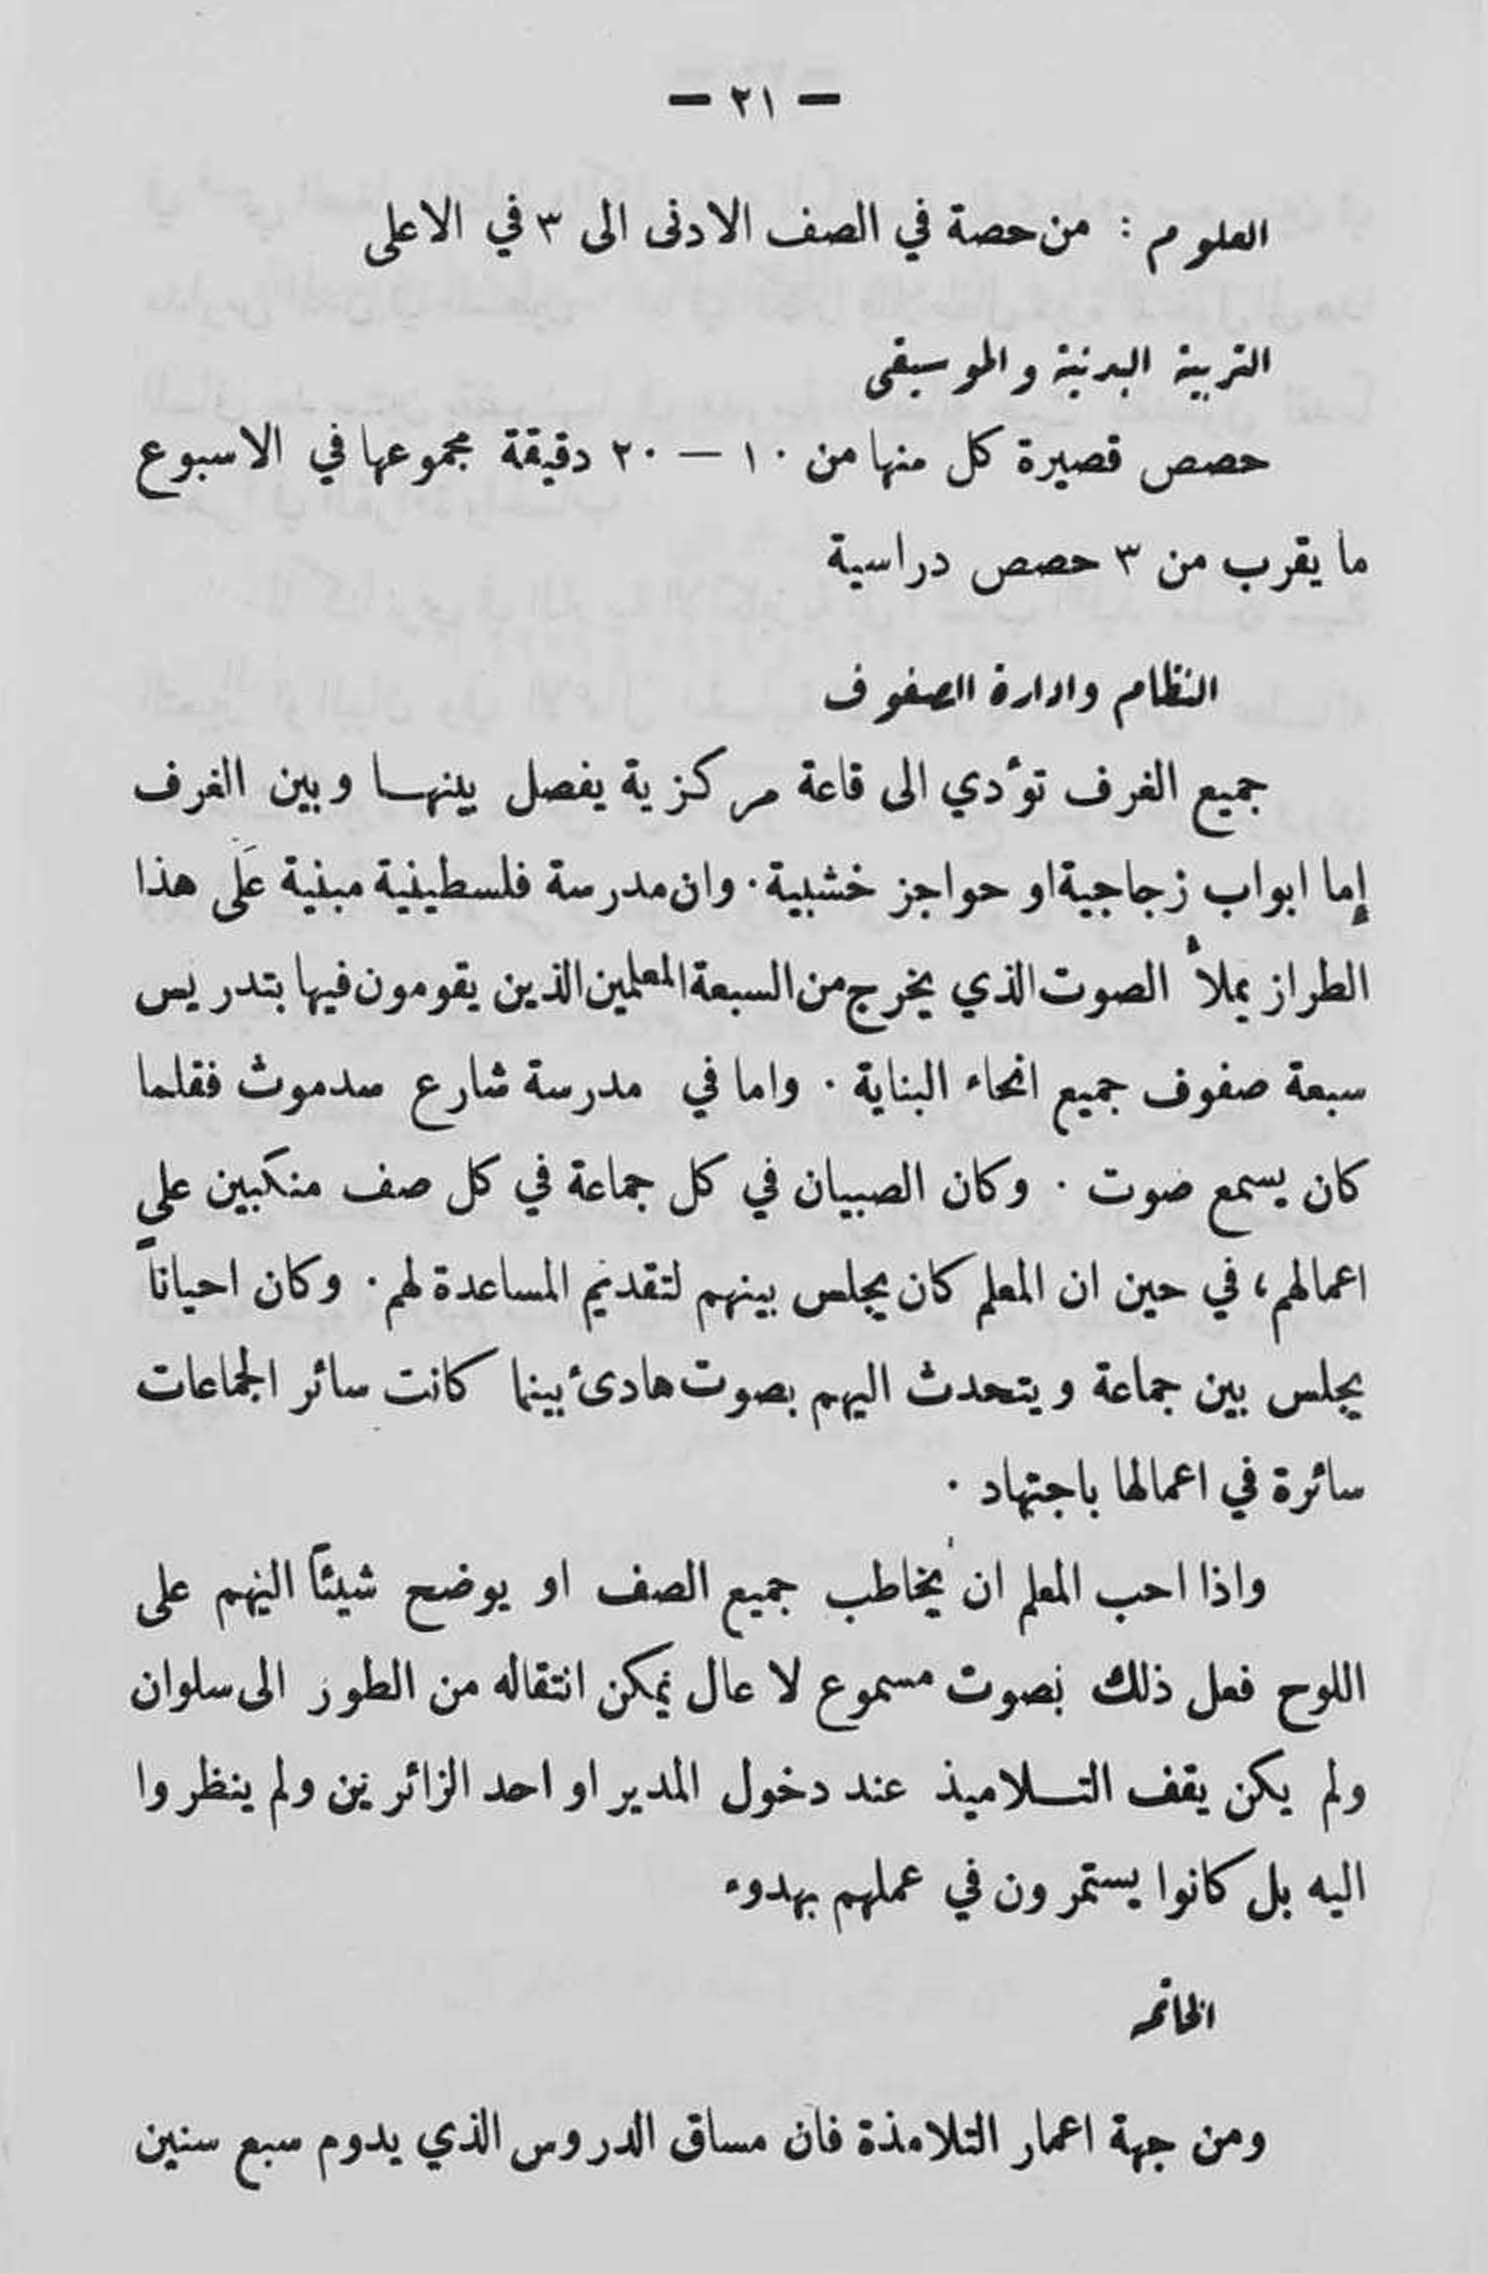 — ٢١ —
العلوم : من حصة في الصف الادنى الى ٣ في الاعلى
التربية البدنية والموسيقى
حصص قصيرة كل منها من ١٠ — ٢٠ دقيقة مجموعها في الاسبوع
ما يقرب من ٣ حصص دراسية
النظام وادارة الصفوف
جميع الغرف تؤدي الى قاعة مركزية يفصل بينها وبين الغرف
إما ابواب زجاجية او حواجز خشبية . وان مدرسة فلسطينية مبنية عَلَى هذا
الطراز يملأ الصوت الذي يخرج من السبعة المعلمين الذين يقومون فيها بتدريس
سبعة صفوف جميع انحاء البناية . واما في مدرسة شارع سدموث فقلما
كان يسمع صوت . وكان الصبيان في كل جماعة في كل صف منكبين على
اعمالهم، في حين ان المعلم كان يجلس بينهم لتقديم المساعدة لهم . وكان احياناً
يجلس بين جماعة ويتحدث اليهم بصوت هادئ بينما كانت سائر الجماعات
سائرة في اعمالها باجتهاد .
واذا احب المعلم ان يخاطب جميع الصف او يوضح شيئاً اليهم على
اللوح فعل ذلك بصوت مسموع لا عال يمكن انتقاله من الطور الى سلوان
ولم يكن يقف التلاميذ عند دخول المدير او احد الزائرين ولم ينظروا
اليه بل كانوا يستمرون في عملهم بهدوء
الخاتمة
ومن جهة اعمار التلامذة فان مساق الدروس الذي يدوم سبع سنين